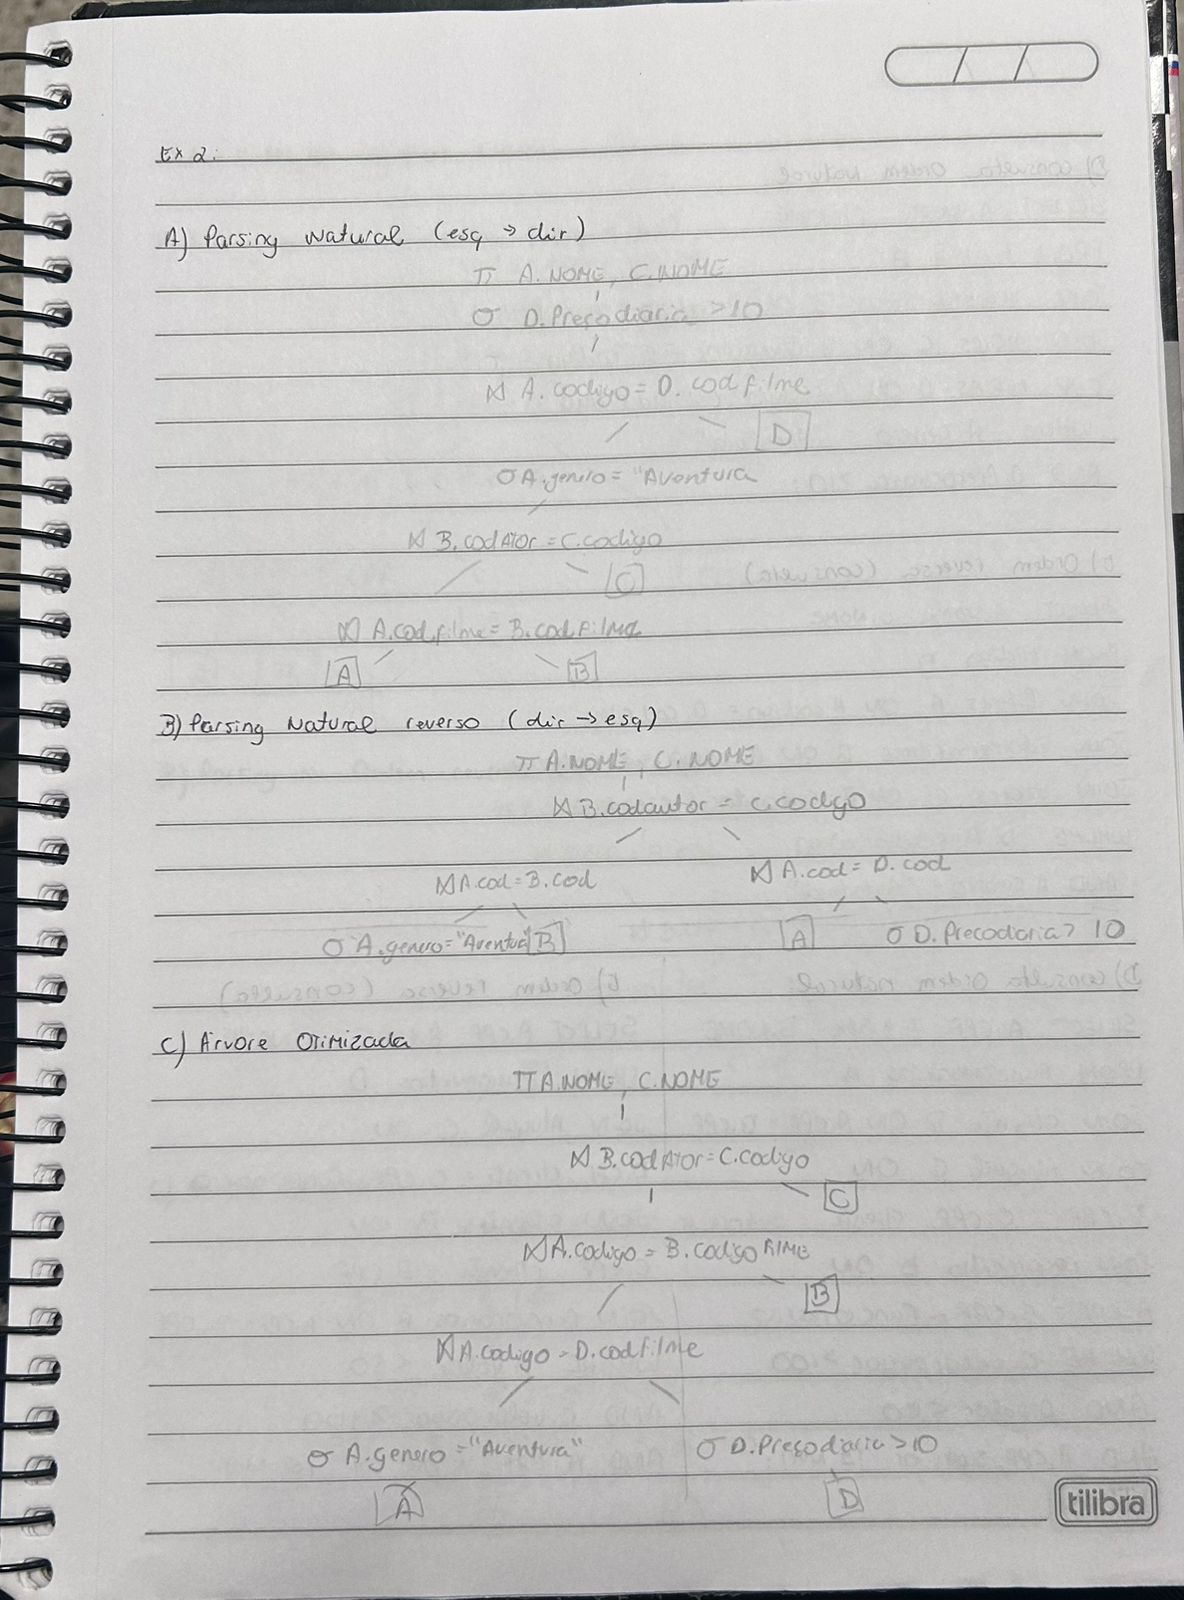 Ex 2:
A) Parsing Natural (esq → dir)
π A.NOME, C.NOME
σ D.Preçodiaria >10
⋈ A.codigo = D.codfilme
D
σ A.genero = "Aventura
⋈ B.codAtor = C.codigo
C
⋈ A.codfilme = B.codFilme
A B
B) Parsing Natural reverso (dir → esq)
π A.NOME, C.NOME
⋈ B.codautor = C.codgo
⋈ A.cod = B.cod ⋈ A.cod = D.cod
σ A.genero = "Aventura" B A σ D.Precodiaria > 10
C) Arvore Otimizada
π A.NOME, C.NOME
⋈ B.codAtor = C.codigo
C
⋈ A.codigo = B.codigoFilme
B
⋈ A.codigo = D.codfilme
σ A.genero = "Aventura" σ D.Preçodiaria > 10
A D
tilibra